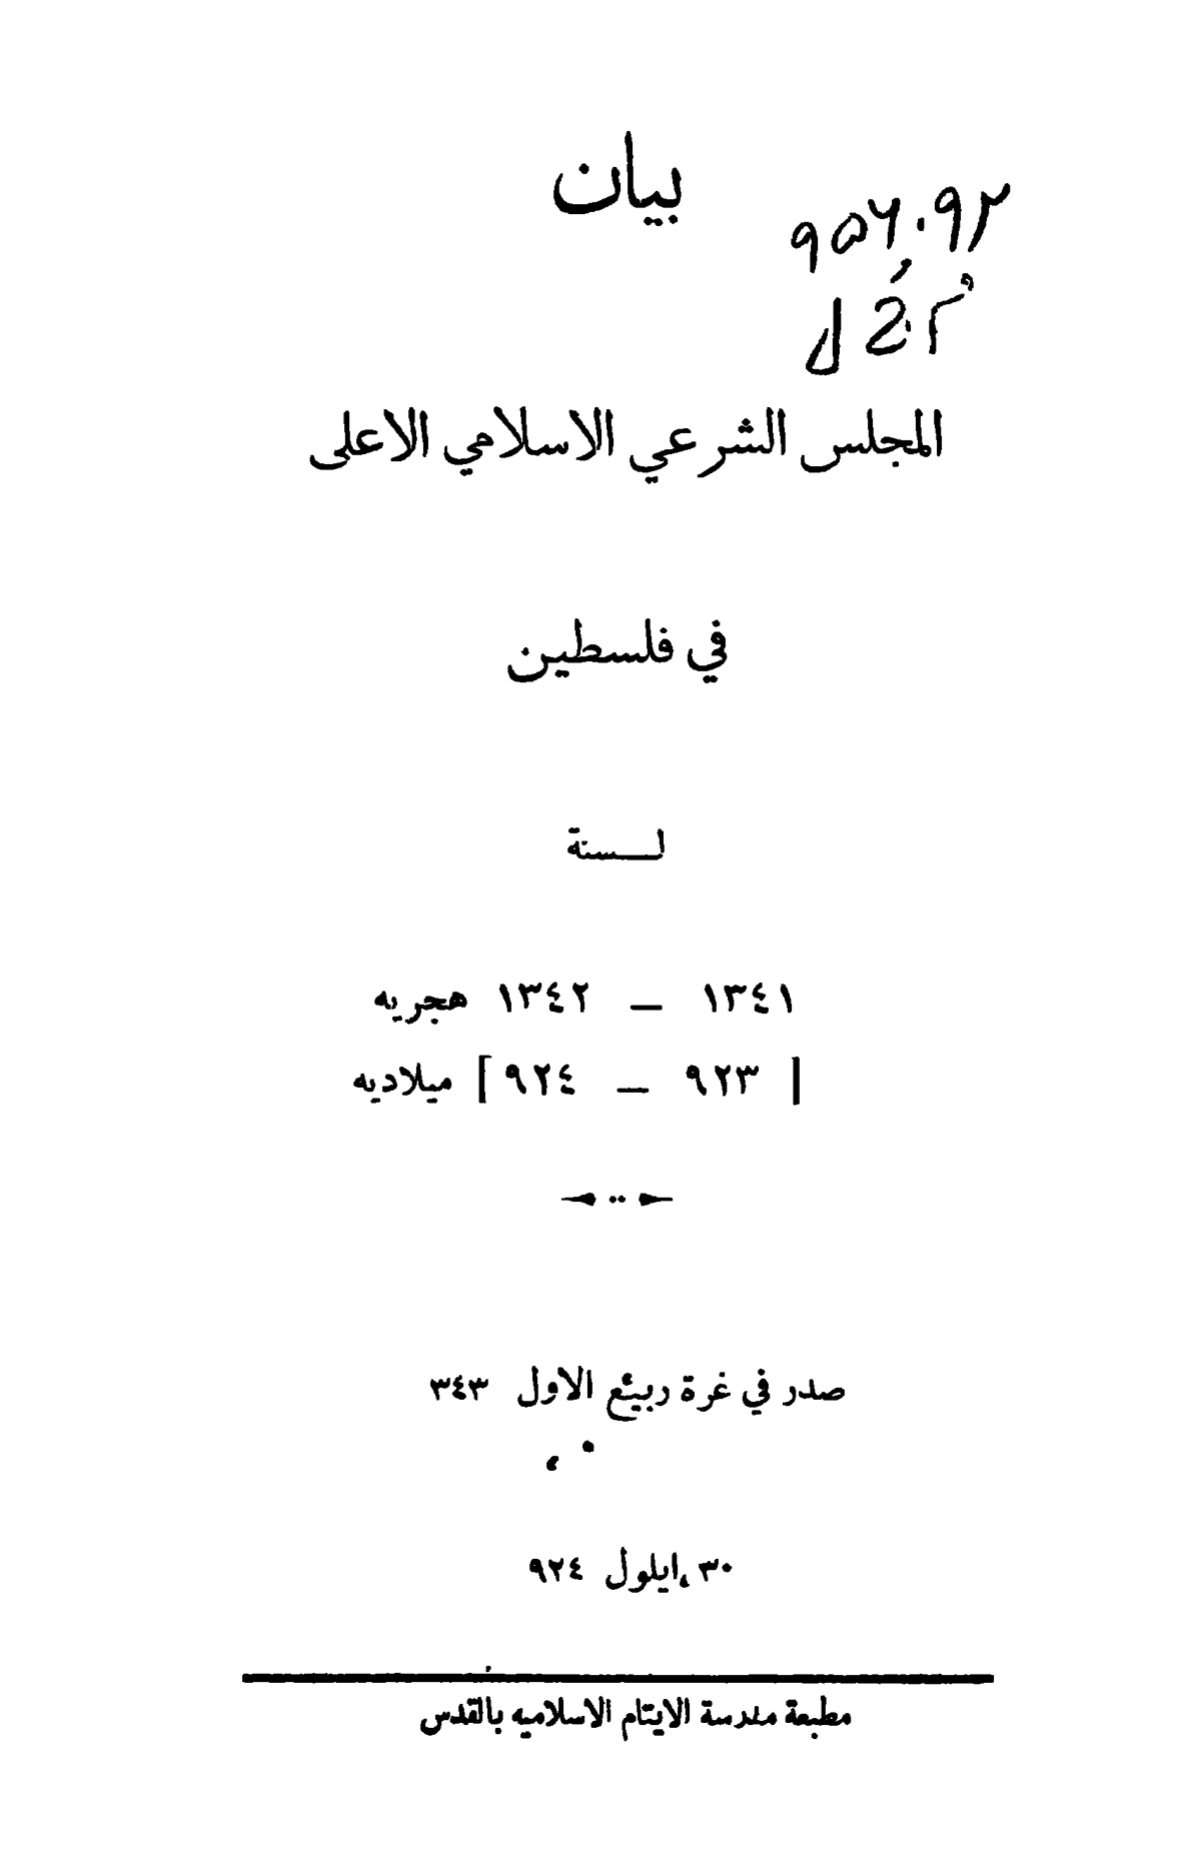 بيان
٩٥٦.٩٢
المجلس الشرعي الاسلامي الاعلى
في فلسطين
لـسنة
١٣٤١ — ١٣٤٢ هجريه
[ ٩٢٣ — ٩٢٤ ] ميلاديه
صدر في غرة ربيع الاول ٣٤٣
٣٠ ايلول ٩٢٤
مطبعة مدرسة الايتام الاسلاميه بالقدس